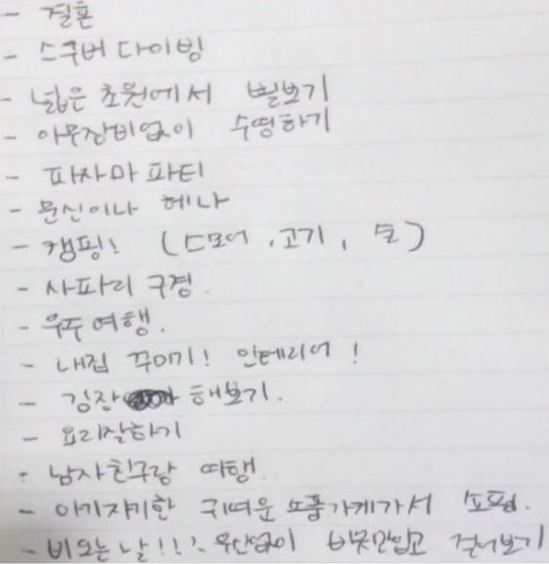 - 결혼
- 스쿠버 다이빙
- 넓은 초원에서 별보기
- 아무장비없이 수영하기
- 파자마 파티
- 문신이나 헤나
- 캠핑! (스모어, 고기, )
- 사파리 구경.
- 우주여행.
- 내집 꾸미기! 인테리어!
- 김장 해보기.
- 요리잘하기
- 남자친구랑 여행
- 아기자기한 귀여운 소품가게가서 쇼핑.
- 비오는날!!! 우산없이 비옷만입고 걸어보기